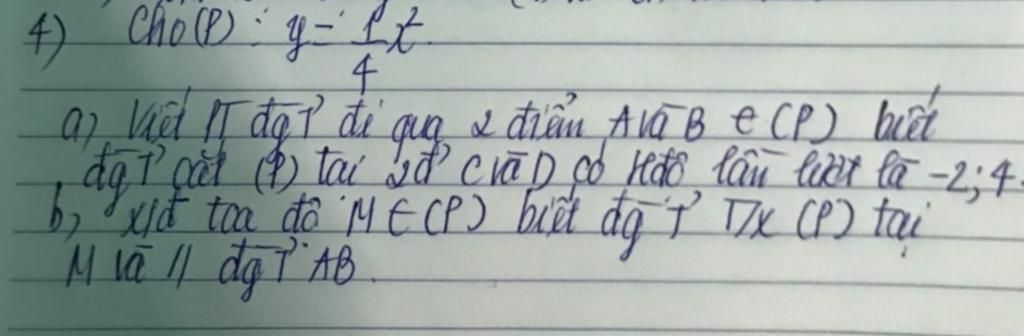 4) Cho (P): y = 1/4 x².
a) Viết PT đgT' đi qua 2 điểm A và B ∈ (P) biết
đgT' cắt (P) tại 2đ' C và D có Hđộ lần lượt là -2; 4.
b) x/đ tọa độ M ∈ (P) biết đgT' T/x (P) tại
M và // đgT' AB.